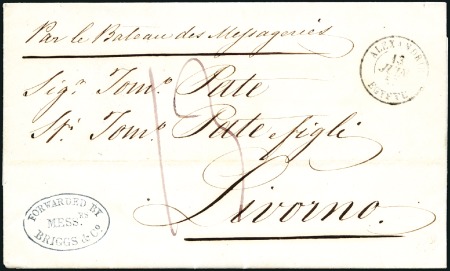 Par le Bateau des Messageries
ALEXANDR
13
JUIN
EGYPTE
Sigr. Tomo. Pate
St. Tomo. Pate e figli
Livorno.
13
FORWARDED BY
MESS.RS
BRIGGS & Co